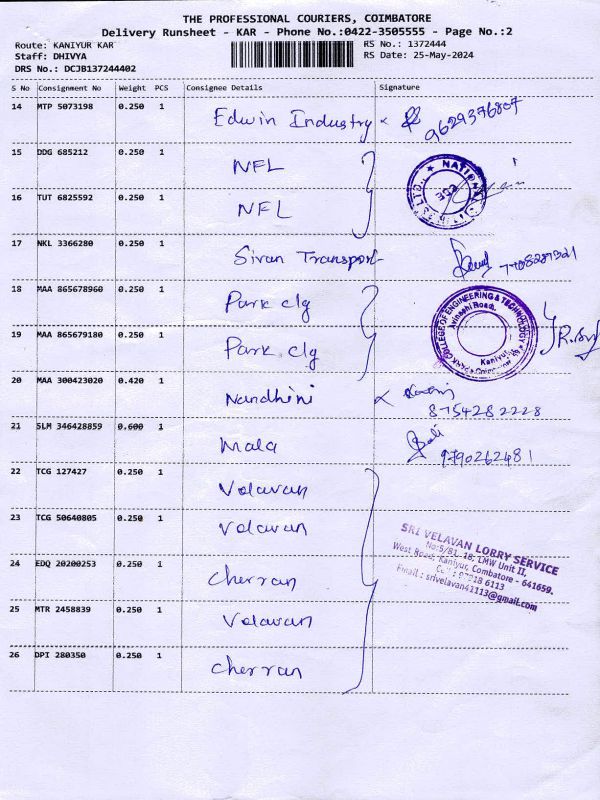 THE PROFESSIONAL COURIERS, COIMBATORE
Delivery Runsheet - KAR - Phone No.:0422-3505555 - Page No.:2
Route: KANIYUR KAR
RS No.: 1372444
Staff: DHIVYA
RS Date: 25-May-2024
DRS No.: DCJB137244402
S No Consignment No Weight PCS Consignee Details Signature
14 MTP 5073198 0.250 1 Edwin Industry x 9629376807
15 DDG 685212 0.250 1 NFL
16 TUT 6825592 0.250 1 NFL
NATIONAL
17 NKL 3366280 0.250 1 Sivan Transport
18 MAA 865678960 0.250 1 Park clg
19 MAA 865679180 0.250 1 Park clg
PARK COLLEGE OF ENGINEERING & TECHNOLOGY
Avinashi Road,
Kaniyur,
20 MAA 300423020 0.420 1 Nandhini
8754282228
21 SLM 346428859 0.600 1 Mala
9790262481
22 TCG 127427 0.250 1 Velavan
23 TCG 50640805 0.250 1 Velavan
24 EDQ 20200253 0.250 1 Cherran
25 MTR 2458839 0.250 1 Velavan
26 DPI 280350 0.250 1 Cherran
SRI VELAVAN LORRY SERVICE
No:5/81, 18, LMW Unit II,
West Road, Kaniyur, Combatore - 641659.
6113
Email : srivelavan41113@gmail.com